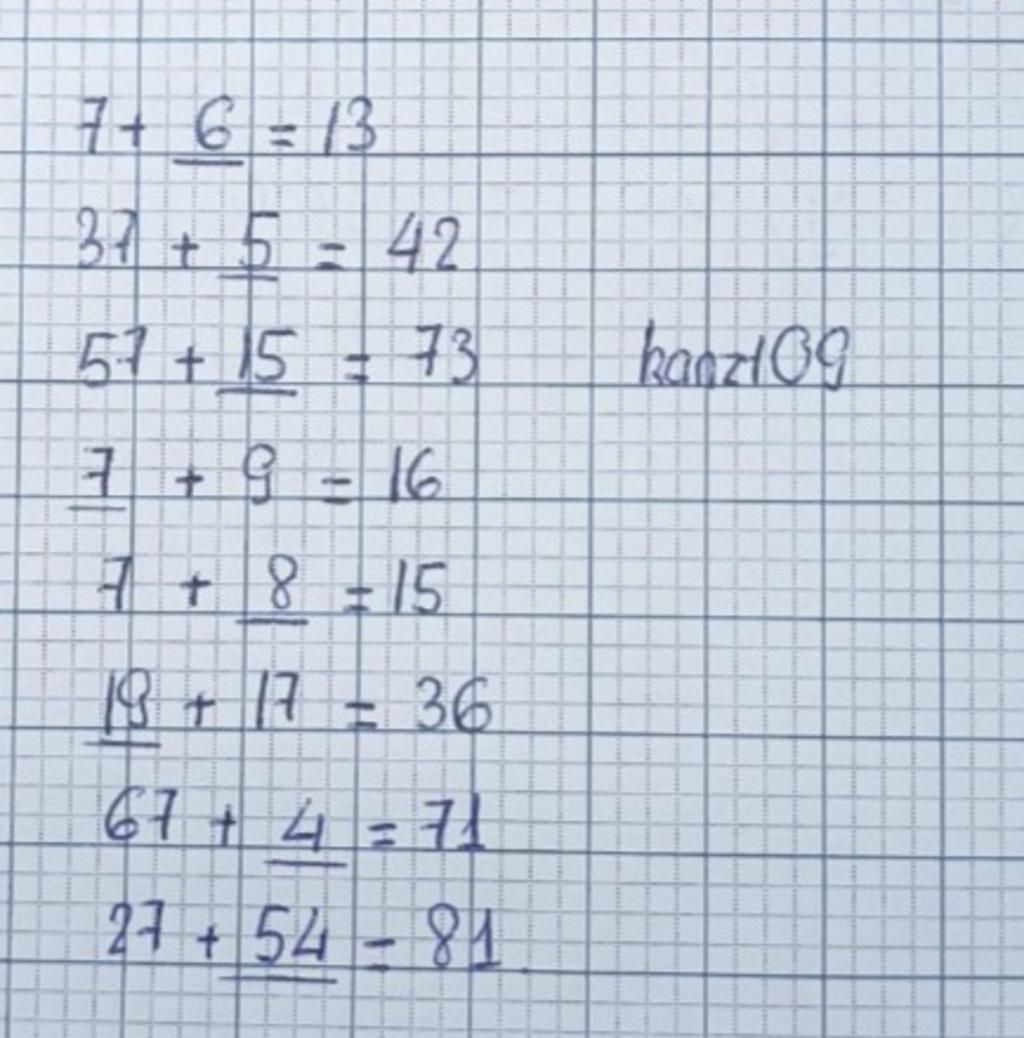 7 + 6 = 13
37 + 5 = 42
57 + 15 = 73
kanzt09
7 + 9 = 16
7 + 8 = 15
19 + 17 = 36
67 + 4 = 71
27 + 54 = 81